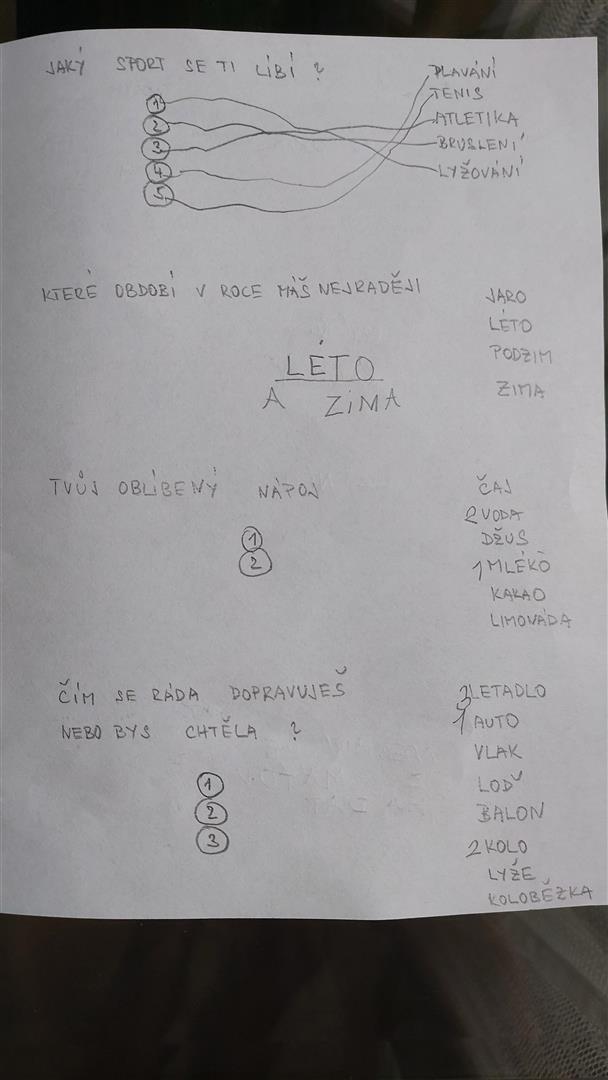 JAKÝ SPORT SE TI LÍBÍ ?
1 PLAVÁNÍ
2 TENIS
3 ATLETIKA
4 BRUSLENÍ
5 LYŽOVÁNÍ
KTERÉ OBDOBÍ V ROCE MÁŠ NEJRADĚJI
JARO
LÉTO
PODZIM
ZIMA
LÉTO
A ZIMA
TVŮJ OBLÍBENÝ NÁPOJ
1
2
ČAJ
2 VODA
DŽUS
1 MLÉKO
KAKAO
LIMONÁDA
ČÍM SE RÁDA DOPRAVUJEŠ
NEBO BYS CHTĚLA ?
1
2
3
3 LETADLO
1 AUTO
VLAK
LOĎ
BALON
2 KOLO
LYŽE
KOLOBĚŽKA